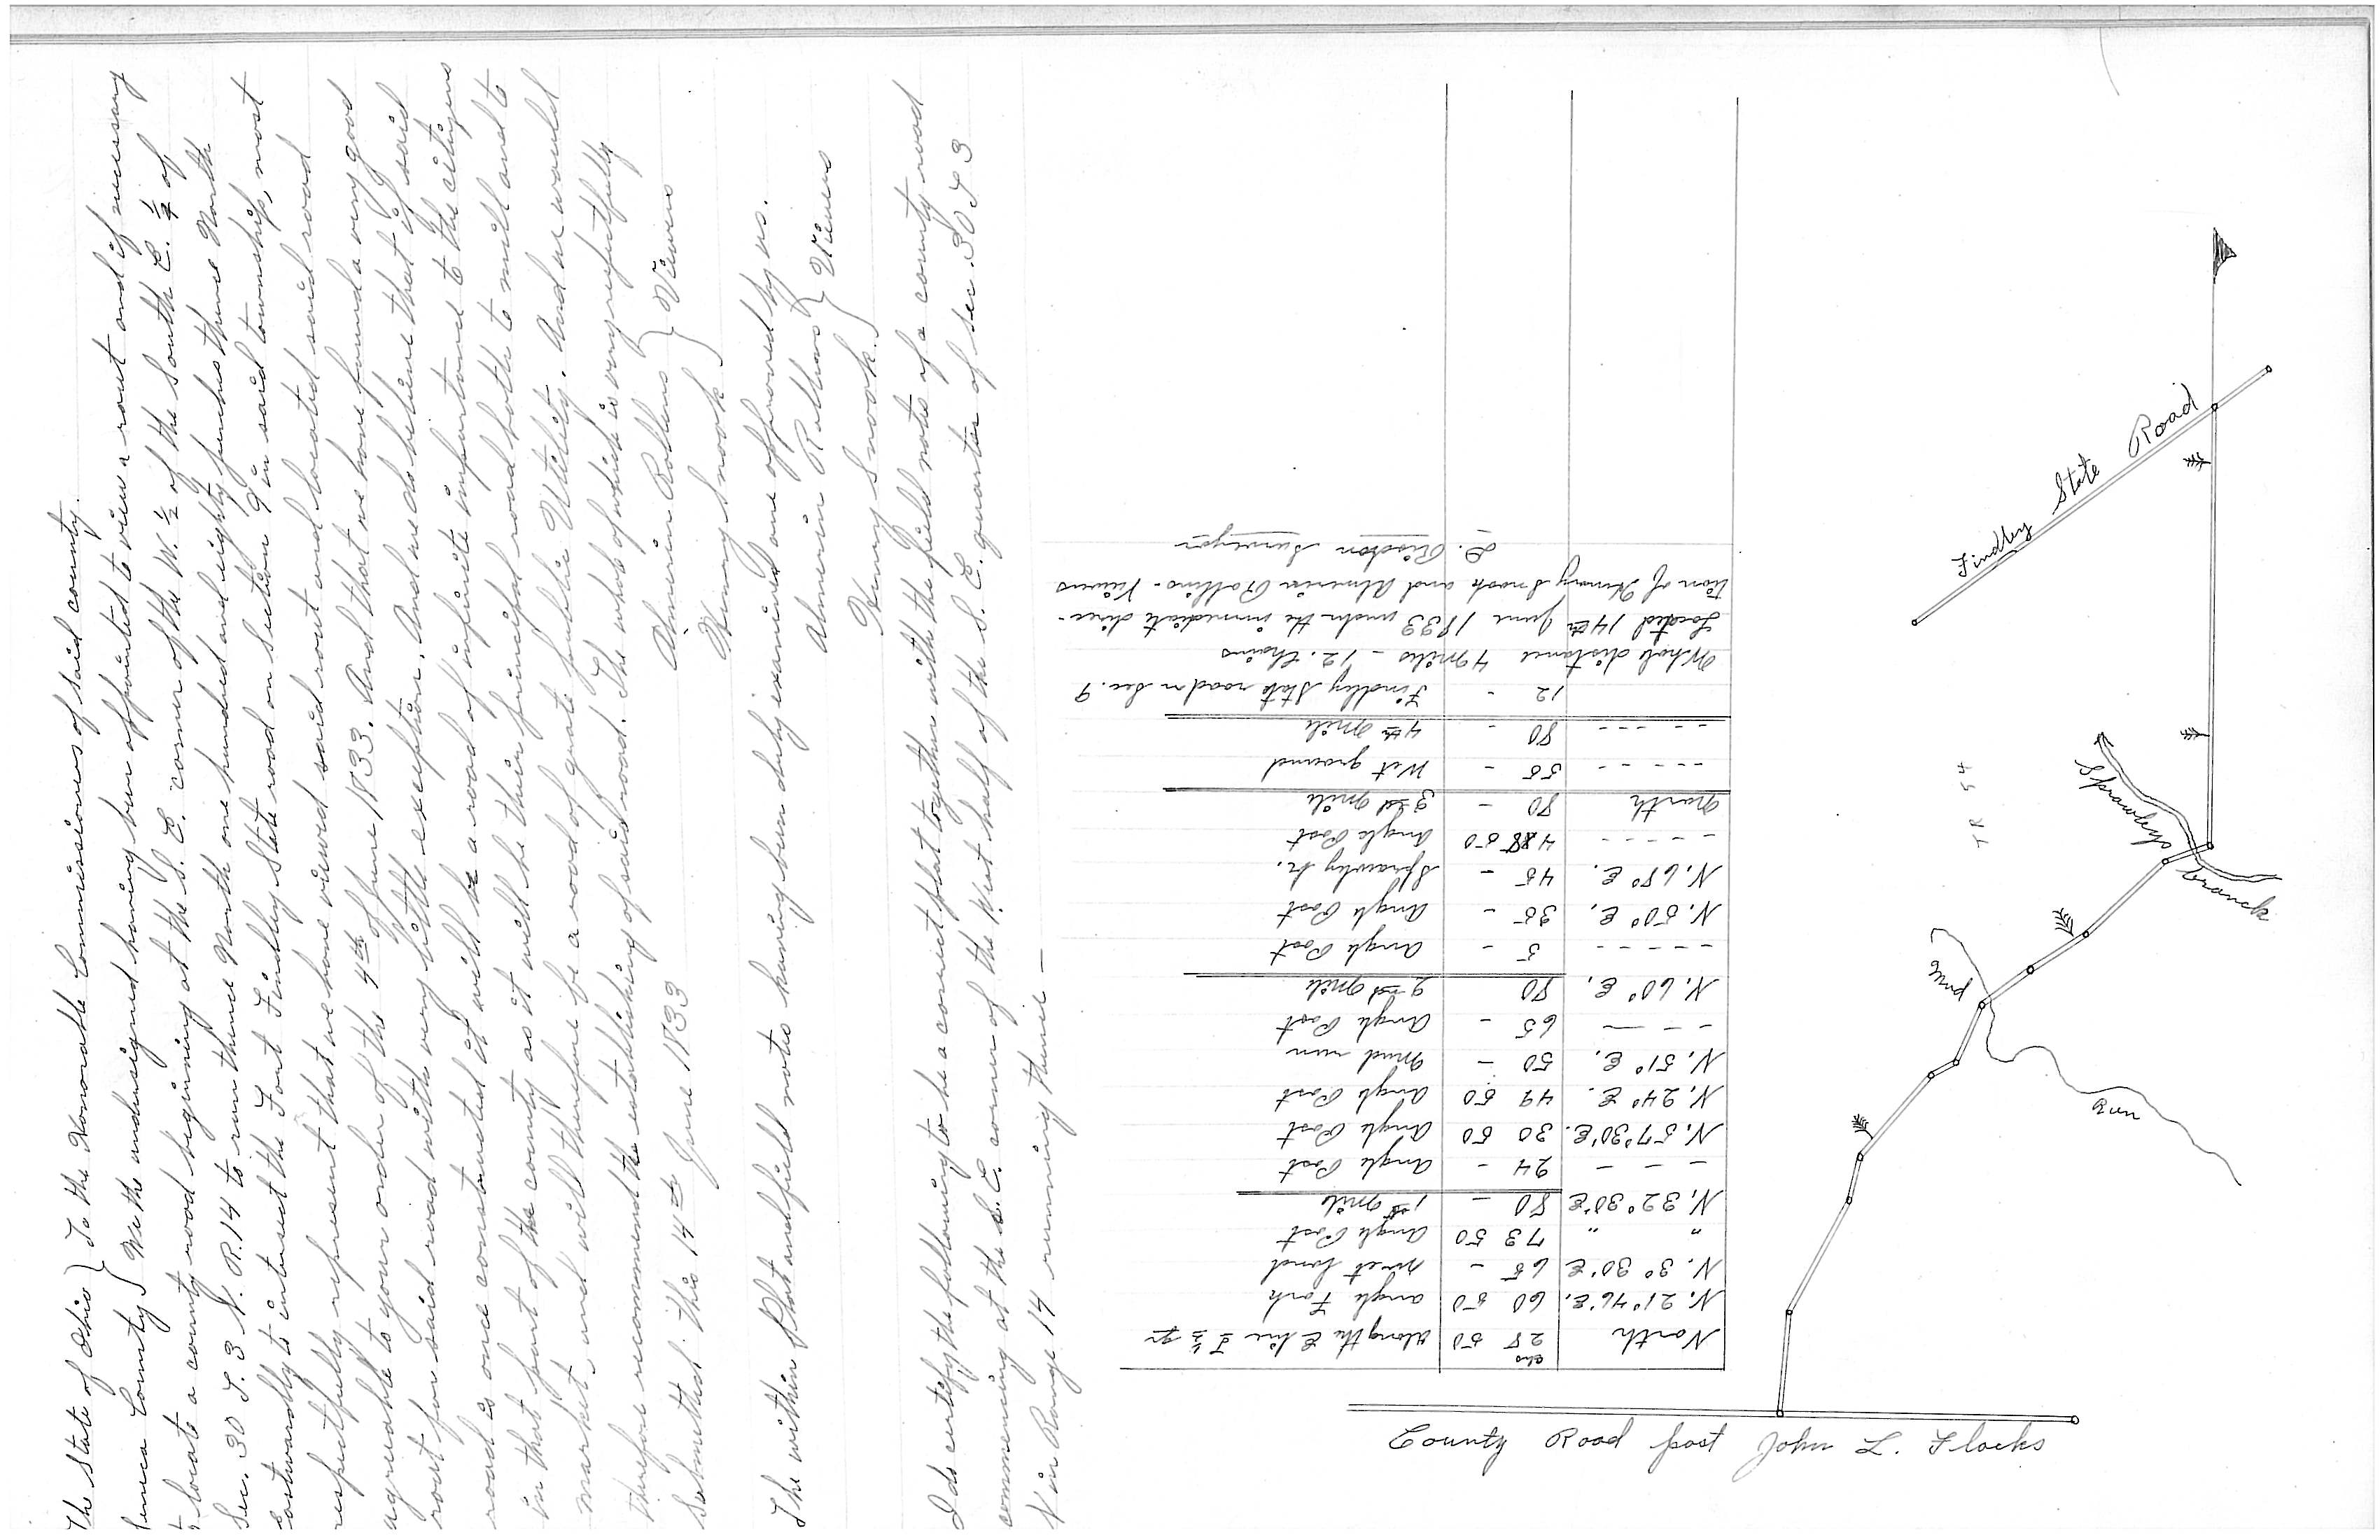 The State of Ohio } To the Honorable Commissioners of said county.
Seneca County } We the undersigned having been appointed to view a rout and if necessary
to locate a county road beginning at the S. E. corner of the W. ½ of the South E. ¼ of
Sec. 30 T. 3 N. R. 14 to run thence North one hundred and eighty perches thence North
eastwardly to intersect the Fort Findley State road on Section 9 in said township, most
respectfully represent that we have viewed said rout and located said road
agreeable to your order of the 4th of June 1833. And that we have found a very good
rout for said road with very little exception. And we do believe that if said
road is once constructed it will be a road of infinite importance to the citizens
in that part of the county as it will be their principal road both to mill and to
market, and will therefore be a road of grate public Utility. And we would
therefore recommend the establishing of said road. The whole of which is very respectfully
Submitted this 14th June 1833
Almerin Rollins } Viewers
Henry Snook
The within Plat and field notes having been duly examined are approved by us.
Almerin Rollins } Viewers
Henry Snook
I do certify the following to be a correct plat together with the field notes of a county road
commencing at the S. E. corner of the West half of the S. E. quarter of sec. 30 T 3
N in Range 14 running thence —
chs
North 28 50 Along the E line I ½ qr
N. 21° 46' E. 60 50 angle Fork
N. 3° 30' E 65 - wet land
" " 73 50 Angle Post
N. 32° 30' E 80 - 1st mile
- - - 24 - Angle Post
N. 57° 30' E. 30 50 Angle Post
N. 24° E. 49 50 Angle Post
N. 51° E. 50 - Mud run
- - - 65 - Angle Post
N. 60° E. 80 2nd mile
- - - - 5 - Angle Post
N. 50° E. 35 - Angle Post
N. 68° E. 45 - Sprawley br.
- - - - 50 Angle Post
North 80 - 3rd mile
- - - - 55 - Wet ground
- - - - 80 - 4th mile
12 - Findley State road on Sec. 9
Whole distance 4 miles - 12. Chains
Located 14th June 1833 under the immediate direc-
tion of Henry Snook and Almerin Rollins - Viewers
D. Risdon Surveyor
Findley State Road
Sprawley branch
TR 54
Mud
Run
County Road past John L. Flacks